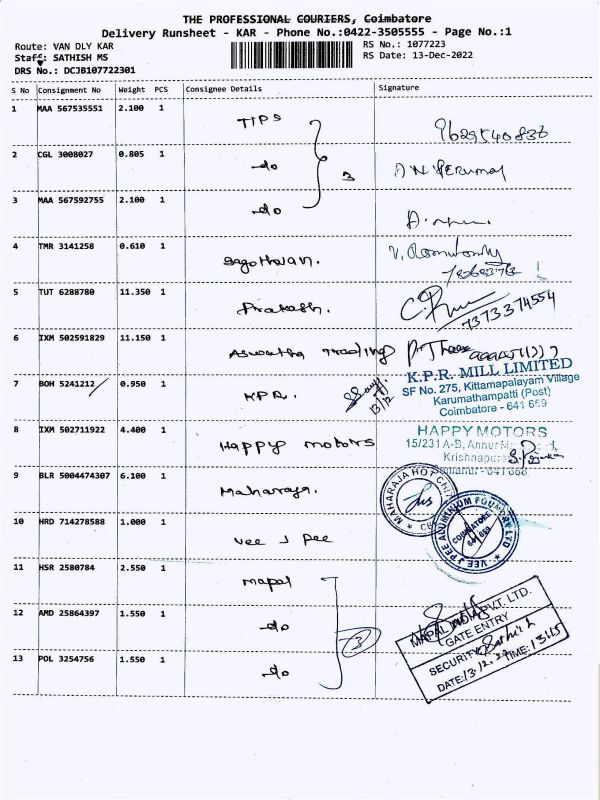 THE PROFESSIONAL COURIERS, Coimbatore
Delivery Runsheet - KAR - Phone No.:0422-3505555 - Page No.:1
Route: VAN DLY KAR
RS No.: 1077223
Staff: SATHISH MS
RS Date: 13-Dec-2022
DRS No.: DCJB107722301
S No Consignment No Weight PCS Consignee Details Signature
1 MAA 567535551 2.100 1 TIPS 9629540836
2 CGL 3008027 0.805 1 -do 3
3 MAA 567592755 2.100 1 -do
4 TMR 3141258 0.610 1
5 TUT 6288780 11.350 1 Prakash. 7373374554
6 IXM 502591829 11.150 1 Aswatha Trading
7 BOH 5241212 0.950 1 KPR. 13/12
K.P.R. MILL LIMITED
SF No. 275, Kittamapalayam Village
Karumathampatti (Post)
Coimbatore - 641 659
8 IXM 502711922 4.400 1 Happy motors
HAPPY MOTORS
15/231 A-B, Annur
9 BLR 5004474307 6.100 1 Maharaja.
MAHARAJA
10 HRD 714278588 1.000 1 Vee J Pee
VEE J PEE ALUMINIUM FOUNDRY
COIMBATORE
641 659
11 HSR 2580784 2.550 1 Mapal
12 AMD 25864397 1.550 1 -do 3
13 POL 3254756 1.550 1 -do
MAPAL INDIA PVT. LTD.
GATE ENTRY
SECURITY: Sathish
DATE: 13.12.22 TIME: 13:15